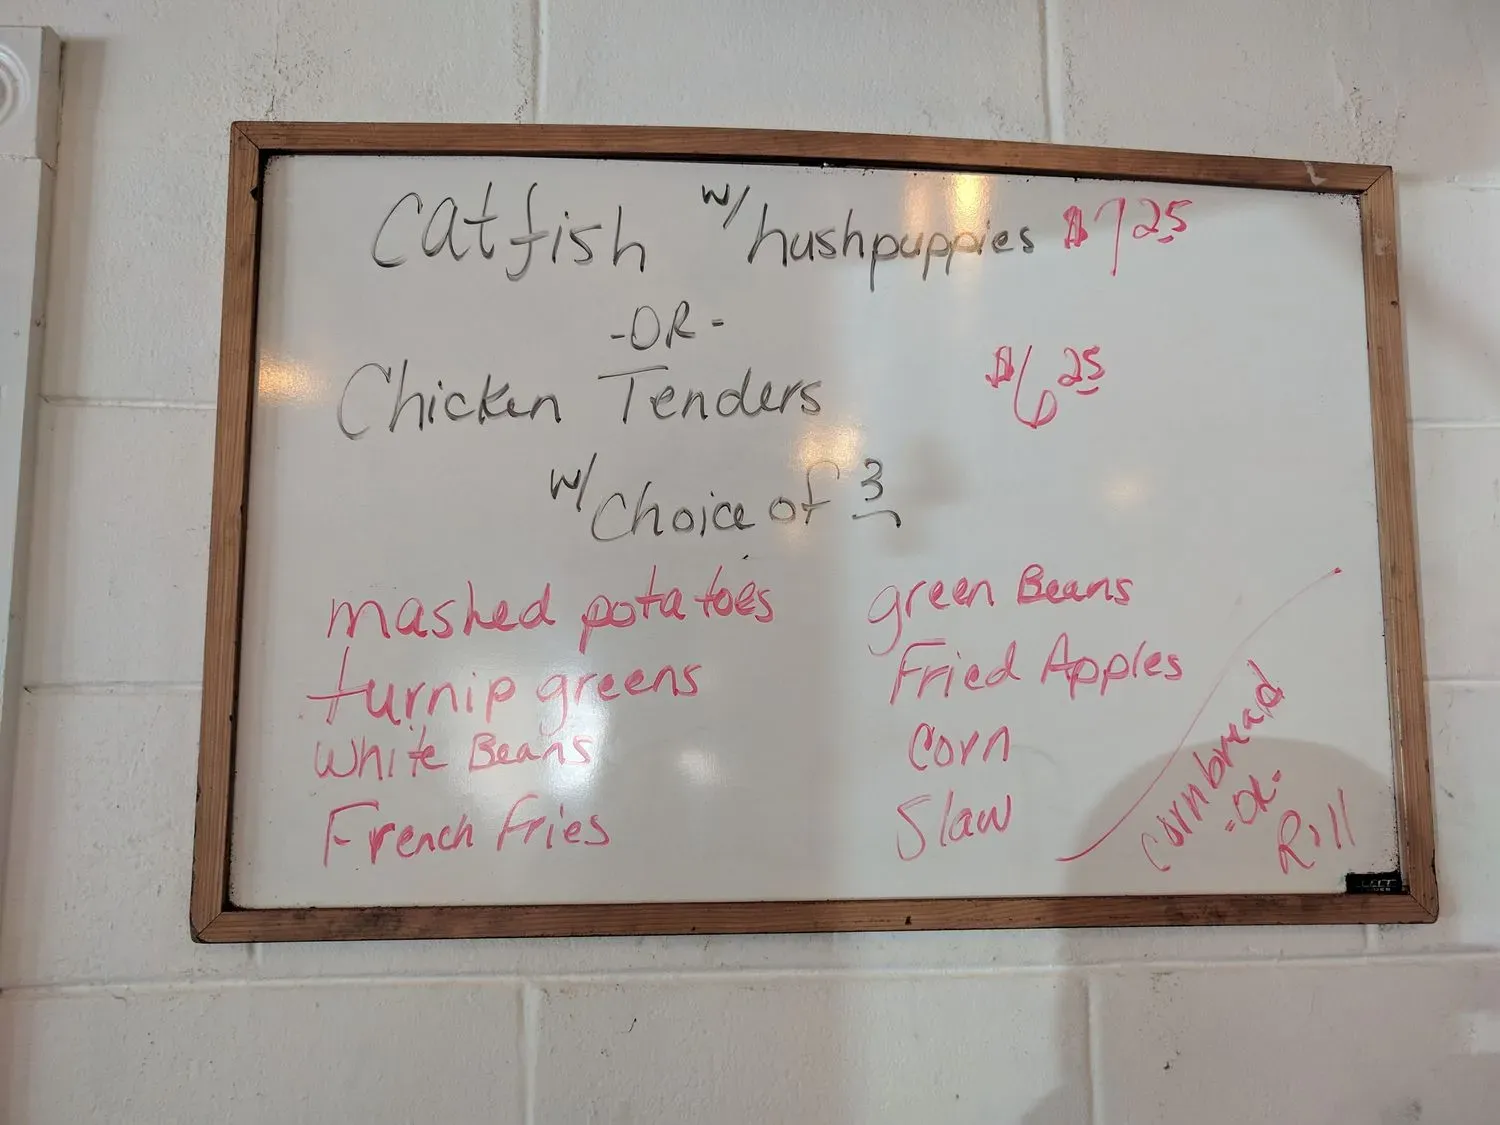 Catfish w/ hushpuppies $7 25
-OR-
Chicken Tenders $6 25
w/ Choice of 3
mashed potatoes green Beans
turnip greens Fried Apples
White Beans Corn
French Fries Slaw
Cornbread
-OR-
Roll